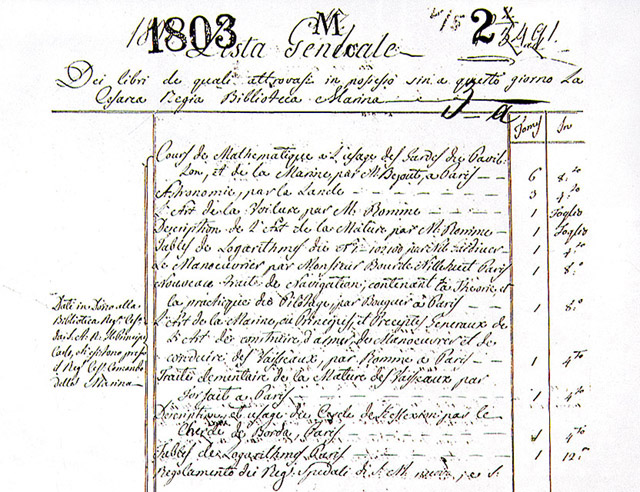 1803 M 2
Lista Generale
Dei libri de quali attrovasi in possesso sin a questo giorno La
Cesarea Regia Biblioteca Marina
Tomes In
Cours de Mathematique a L'usage des Gardes du Pavil-
lon, et de la Marine, par M. Bezout, a Paris 6 8.º
Astronomie, par la Lande 3 4.º
L'Art de la Voilure par M. Romme 1 Foglio
Description de l'Art de la Mature par M. Romme 1 Foglio
Tables de Logarithmes par Gardiner 1 4.º
Le Manoeuvrier par Monsieur Bourde Villehuet Paris 1 8.º
Nouveau Traité de Navigation, contenant la Theorie et
la prachique du Pilotage, par Bouguer a Paris 1 8.º
L'Art de la Marine, ou Principes, et Preceptes Generaux de
l'Art de construire d'armer, de Manoeuvrer et de
conduire des Vaisseaux, par Romme a Paris 1 4.to
Traité elementaire de la Mature des Vaisseaux par
Forfait a Paris 1 4.to
Description et usage du Cercle de Reflexion par le
Ch. de Borda, Paris 1 4.to
Tables de Logarithmes Paris 1 12.º
Regolamento dei Regi Spedali di S. M.
Dati in Dono alla
Biblioteca
Carlo,
Marina